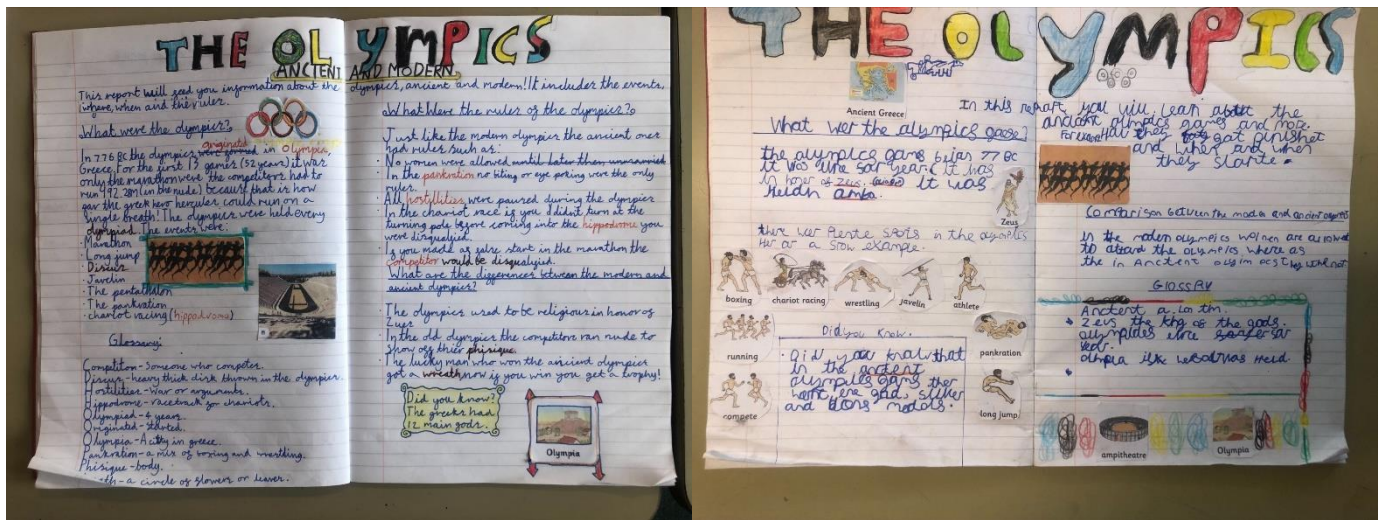 THE OLYMPICS
ANCIENT AND MODERN
This report will feed you information about the olympics, ancient and modern! It includes the events,
where, when and the rules.
What were the olympics?
In 776 BC the olympics originated in Olympia,
Greece. For the first 13 games (52 years) it was
only the marathon were the competitors had to
run 192.28m (in the nude) because that is how
far the greek hero hercules could run on a
single breath! The olympics were held every
olympiad. The events were.
· Marathon
· Long jump
· Discus
· Javelin
· The pentathalon
· The pankration
· chariot racing (hippodrome)
Glossary
Competitor - Someone who competes.
Discus - heavy thick disk thrown in the olympics.
Hostilities - war or arguments.
Hippodrome - racetrack for chariots.
Olympiad - 4 years.
Originated - started.
Olympia - A city in greece.
Pankration - a mix of boxing and wrestling.
Phisique - body.
- a circle of flowers or leaves.
What Were the rules of the olympics?
Just like the modern olympics the ancient ones
had rules such as:
· No women were allowed
· In the pankration no biting or eye poking were the only
rules.
· All hostilities were paused during the olympics
· In the chariot race if you didn't turn at the
turning pole before coming into the hippodrome you
were disqualified.
· If you made a false start in the marathon the
competitor would be disqualified.
What are the differences between the modern and
ancient olympics?
· The olympics used to be religious in honor of
Zues.
· In the old olympics the competitors ran nude to
show off thier phisique.
· The lucky man who won the ancient olympics
got a wreath now if you win you get a trophy!
Did you know?
The greeks had
12 main gods.
Olympia
THE OLYMPICS
Ancient Greece
In this report you will lean about the
ancient olympics games and more.
For example how they got punished
and when and when
they starte.
What wer the olympics
the olympics gams 77 BC
it was
in honer of Zeus. It was
Zeus
ther wer in the olympics
Her ar a example.
boxing
chariot racing
wrestling
javelin
athlete
running
pankration
compete
long jump
Did you know.
· Did you know that
in the ancient
olympics gams ther
wernt ene gold, silver
and medols.
Comparison between the moden and ancient olympics
In the moden olympics women are alowed
to atent the olympics where as
the in Ancient
Glossry
Ancient a lon tim.
· Zeus the king of the gods.
ampitheatre
Olympia